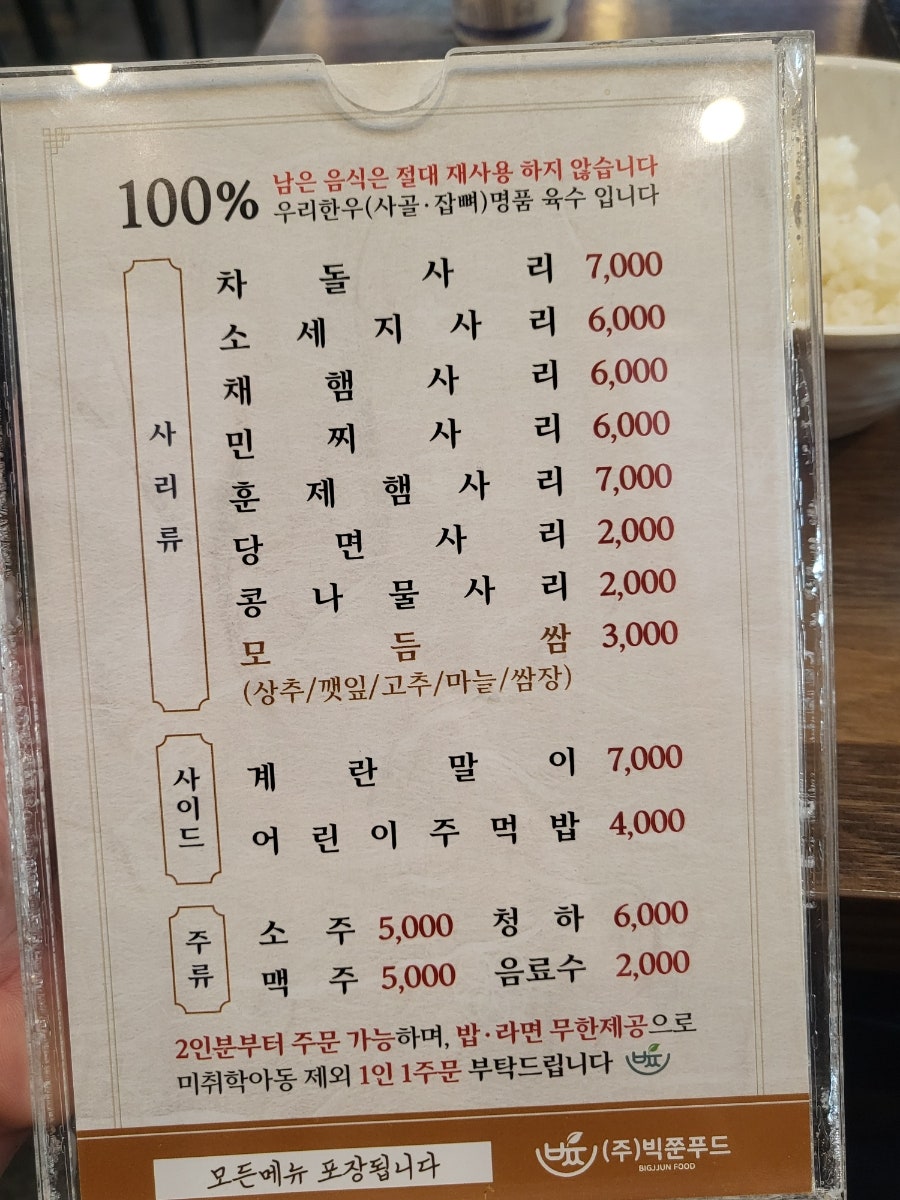 100%
남은 음식은 절대 재사용 하지 않습니다
우리한우(사골·잡뼈)명품 육수 입니다
사리류
차돌사리 7,000
소세지사리 6,000
채햄사리 6,000
민찌사리 6,000
훈제햄사리 7,000
당면사리 2,000
콩나물사리 2,000
모듬쌈 3,000
(상추/깻잎/고추/마늘/쌈장)
사이드
계란말이 7,000
어린이주먹밥 4,000
주류
소주 5,000 청하 6,000
맥주 5,000 음료수 2,000
2인분부터 주문 가능하며, 밥·라면 무한제공으로
미취학아동 제외 1인 1주문 부탁드립니다
모든메뉴 포장됩니다
(주)빅쭌푸드
BIGJJUN FOOD